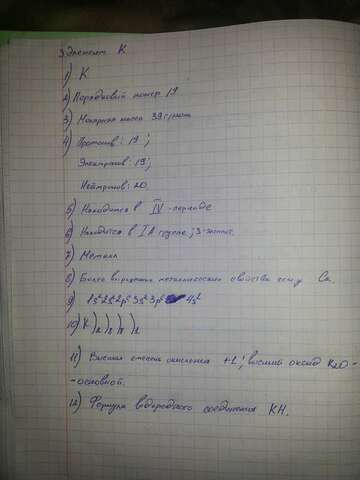 Элемент K
1) K
2) Порядковый номер 19
3) Молярная масса 39 г/моль
4) Протонов: 19;
Электронов: 19;
Нейтронов: 20
5) Находится в IV-периоде
6) Находится в IA группе;
7) Металл
8) Более выражены металлические свойства чем у Ca.
9) 1s² 2s² 2p⁶ 3s² 3p⁶ 4s²
10) K ) ) ) )
11) Высшая степень окисления +1; высший оксид K₂O -
- основной.
12) Формула водородного соединения KH.